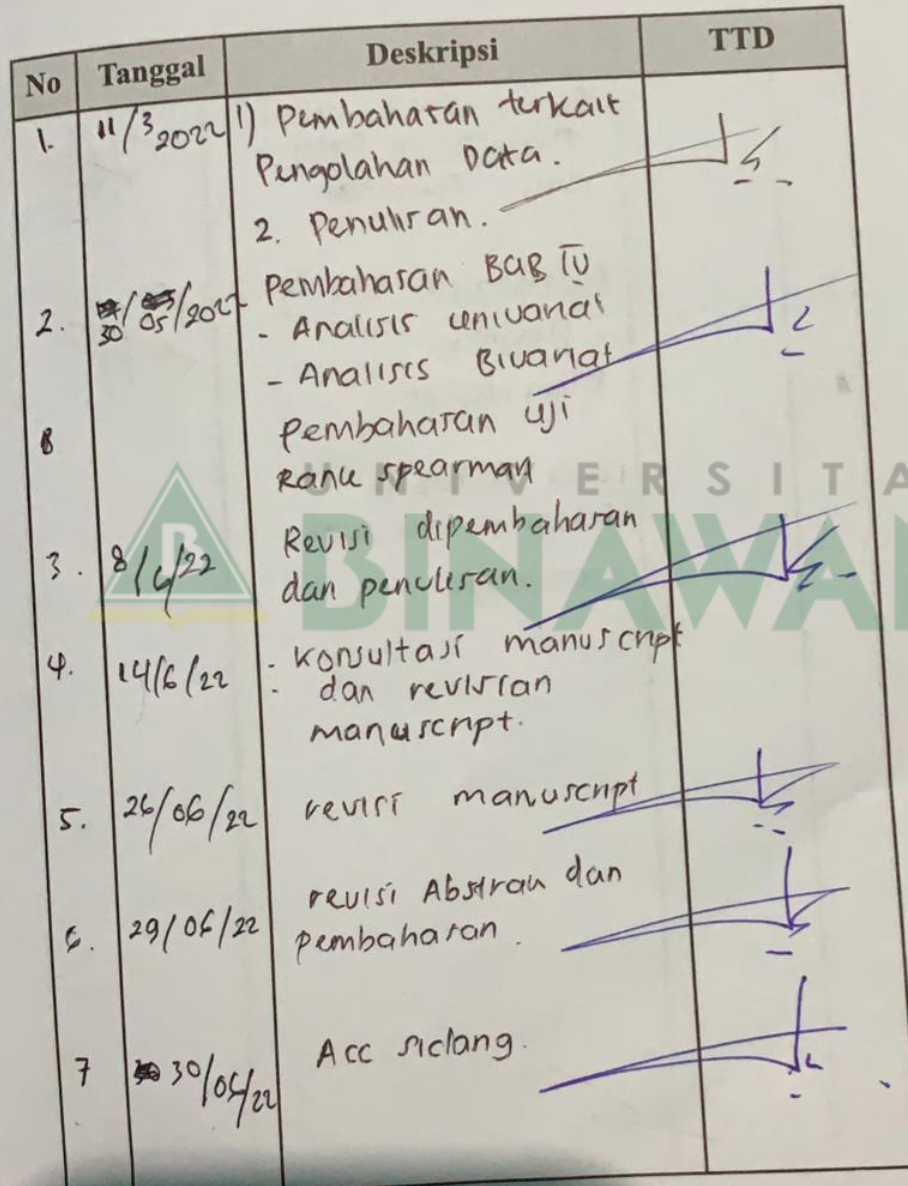 No Tanggal Deskripsi TTD
1. 11/3 2022 1) Pembahasan terkait
Pengolahan Data.
2. Penulisan.
2. 30/05/2022 Pembahasan BAB IV
- Analisis univariat
- Analisis Bivariat
Pembahasan uji
Rank spearman
UNIVERSITA
BINAWAN
3. 8/6/22 Revisi dipembahasan
dan penulisan.
4. 14/6/22 - Konsultasi manuscript
- dan revisian
manuscript.
5. 26/06/22 revisi manuscript
6. 29/06/22 revisi Abstrak dan
pembahasan.
7 30/06/22 Acc sidang.